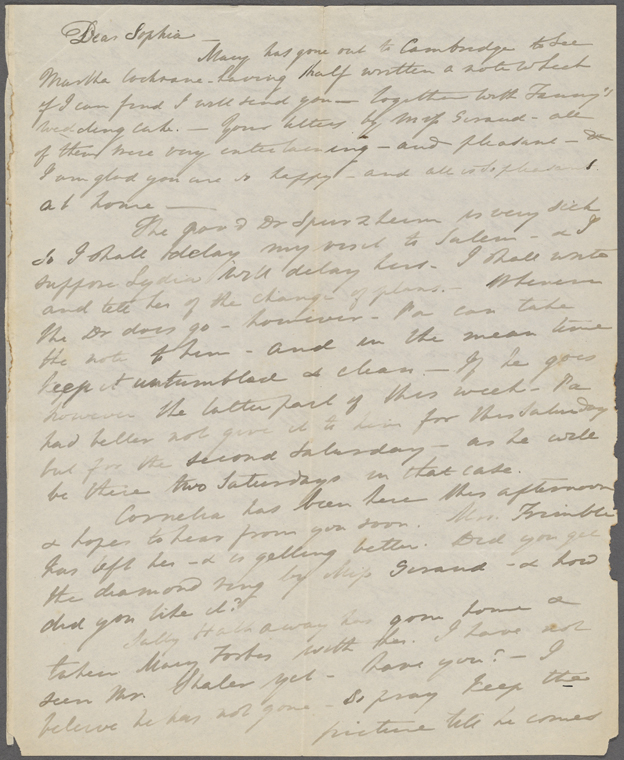 Dear Sophia —
Mary has gone out to Cambridge to see
Martha Cochrane - having half written a note which
if I can find I will send you — together with Fanny's
wedding cake. — Your letters by Miss Giraud - all
of them were very entertaining - and pleasant - &
I am glad you are so happy - and all is so pleasant
at home —
The good Dr Spurzheim is very sick
so I shall delay my visit to Salem - & I
suppose Lydia will delay hers - I shall write
and tell her of the change of plans. - Whenever
the Dr does go - however - Pa can take
the note to him - and in the mean time
keep it untumbled & clean. - If he goes
however the latter part of this week - Pa
had better not give it to him for this Saturday
but for the second Saturday - as he will
be there two Saturdays in that case.
Cornelia has been here this afternoon
& hopes to hear from you soon. Mrs. Trimble
has left her - & is getting better. Did you get
the diamond ring by Miss Giraud - & how
did you like it?
Sally Hathaway has gone home &
taken Mary Forbes with her. I have not
seen Mr. Thaler yet - have you? - I
believe he has not gone - So pray keep the
picture till he comes